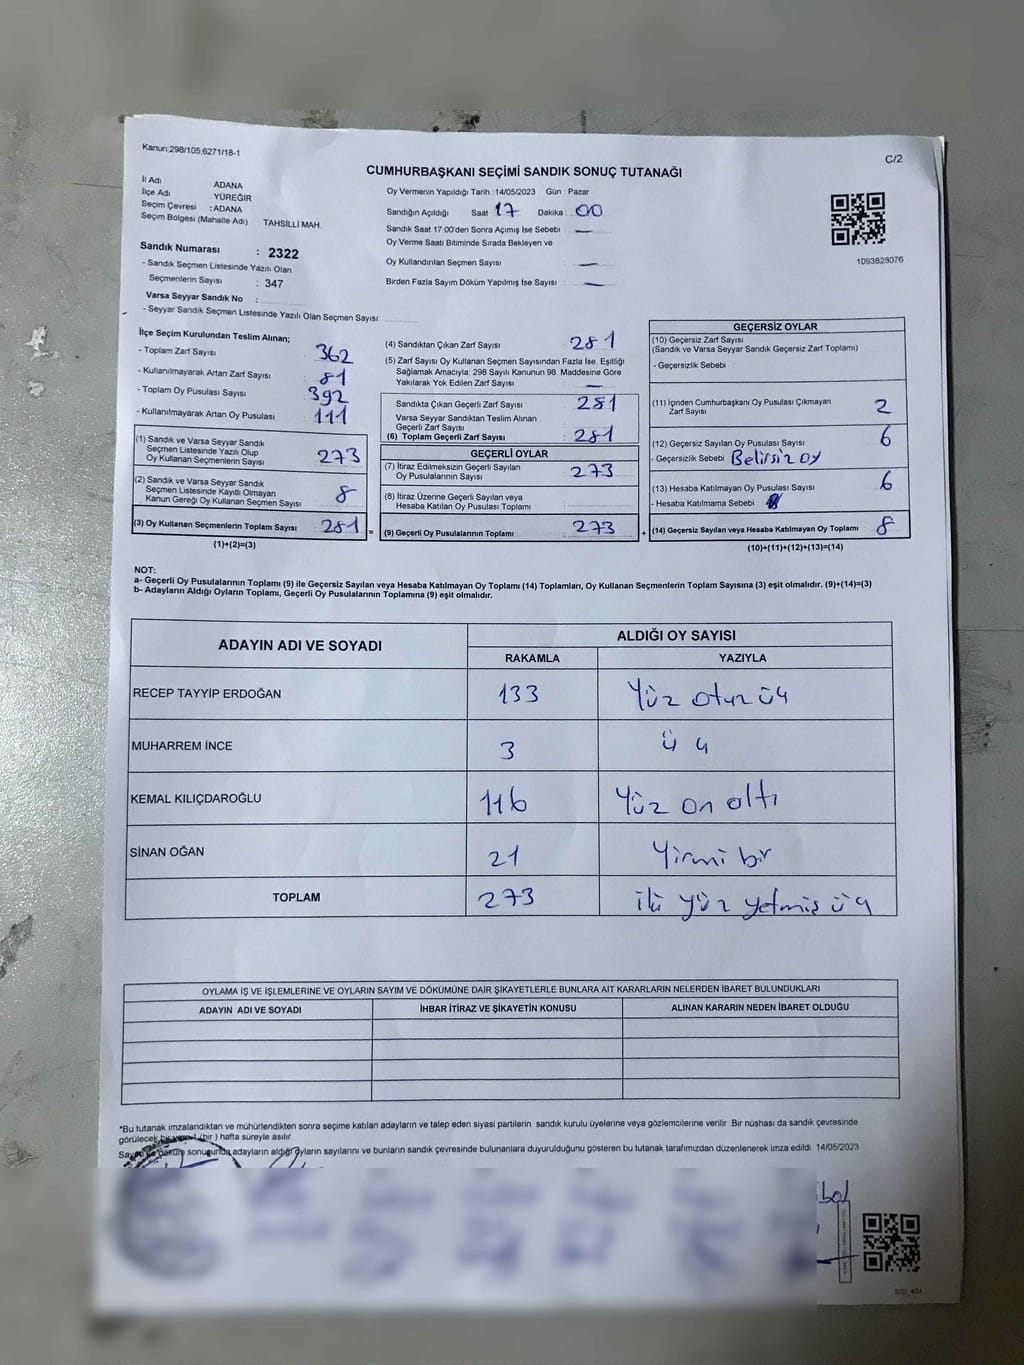 Kanun:298/105;6271/18-1
C/2
CUMHURBAŞKANI SEÇİMİ SANDIK SONUÇ TUTANAĞI
İl Adı ADANA
İlçe Adı YÜREĞİR
Seçim Çevresi :ADANA
Seçim Bölgesi (Mahalle Adı) : TAHSİLLİ MAH.
Sandık Numarası : 2322
- Sandık Seçmen Listesinde Yazılı Olan
Seçmenlerin Sayısı : 347
Varsa Seyyar Sandık No :
- Seyyar Sandık Seçmen Listesinde Yazılı Olan Seçmen Sayısı:
Oy Vermenin Yapıldığı Tarih :14/05/2023 Gün : Pazar
Sandığın Açıldığı Saat 17 Dakika 00
Sandık Saat 17:00'den Sonra Açımış İse Sebebi : —
Oy Verme Saati Bitiminde Sırada Bekleyen ve
Oy Kullandırılan Seçmen Sayısı : —
Birden Fazla Sayım Döküm Yapılmış İse Sayısı : —
1093823076
İlçe Seçim Kurulundan Teslim Alınan;
- Toplam Zarf Sayısı 362
- Kullanılmayarak Artan Zarf Sayısı 81
- Toplam Oy Pusulası Sayısı 392
- Kullanılmayarak Artan Oy Pusulası 111
(1) Sandık ve Varsa Seyyar Sandık
Seçmen Listesinde Yazılı Olup
Oy Kullanan Seçmenlerin Sayısı 273
(2) Sandık ve Varsa Seyyar Sandık
Seçmen Listesinde Kayıtlı Olmayan
Kanun Gereği Oy Kullanan Seçmen Sayısı 8
(3) Oy Kullanan Seçmenlerin Toplam Sayısı 281 =
(1)+(2)=(3)
(4) Sandıktan Çıkan Zarf Sayısı 281
(5) Zarf Sayısı Oy Kullanan Seçmen Sayısından Fazla İse, Eşitliği
Sağlamak Amacıyla; 298 Sayılı Kanunun 98. Maddesine Göre
Yakılarak Yok Edilen Zarf Sayısı —
Sandıkta Çıkan Geçerli Zarf Sayısı 281
Varsa Seyyar Sandıktan Teslim Alınan
Geçerli Zarf Sayısı
(6) Toplam Geçerli Zarf Sayısı 281
GEÇERLİ OYLAR
(7) İtiraz Edilmeksizin Geçerli Sayılan
Oy Pusulasının Sayısı 273
(8) İtiraz Üzerine Geçerli Sayılan veya
Hesaba Katılan Oy Pusulası Toplamı
(9) Geçerli Oy Pusulalarının Toplamı 273 +
GEÇERSİZ OYLAR
(10) Geçersiz Zarf Sayısı
(Sandık ve Varsa Seyyar Sandık Geçersiz Zarf Toplamı)
- Geçersizlik Sebebi
(11) İçinden Cumhurbaşkanı Oy Pusulası Çıkmayan
Zarf Sayısı 2
(12) Geçersiz Sayılan Oy Pusulası Sayısı 6
- Geçersizlik Sebebi Belirsiz oy
(13) Hesaba Katılmayan Oy Pusulası Sayısı 6
- Hesaba Katılmama Sebebi
(14) Geçersiz Sayılan veya Hesaba Katılmayan Oy Toplamı 8
(10)+(11)+(12)+(13)=(14)
NOT:
a- Geçerli Oy Pusulalarının Toplamı (9) ile Geçersiz Sayılan veya Hesaba Katılmayan Oy Toplamı (14) Toplamları, Oy Kullanan Seçmenlerin Toplam Sayısına (3) eşit olmalıdır. (9)+(14)=(3)
b- Adayların Aldığı Oyların Toplamı, Geçerli Oy Pusulalarının Toplamına (9) eşit olmalıdır.
ADAYIN ADI VE SOYADI
ALDIĞI OY SAYISI
RAKAMLA YAZIYLA
RECEP TAYYİP ERDOĞAN 133 Yüz otuz üç
MUHARREM İNCE 3 üç
KEMAL KILIÇDAROĞLU 116 Yüz on altı
SİNAN OĞAN 21 Yirmi bir
TOPLAM 273 iki yüz yetmiş üç
OYLAMA İŞ VE İŞLEMLERİNE VE OYLARIN SAYIM VE DÖKÜMÜNE DAİR ŞİKAYETLERLE BUNLARA AİT KARARLARIN NELERDEN İBARET BULUNDUKLARI
ADAYIN ADI VE SOYADI İHBAR İTİRAZ VE ŞİKAYETİN KONUSU ALINAN KARARIN NEDEN İBARET OLDUĞU
*Bu tutanak imzalandıktan ve mühürlendikten sonra seçime katılan adayların ve talep eden siyasi partilerin sandık kurulu üyelerine veya gözlemcilerine verilir. Bir nüshası da sandık çevresinde
görülecek bir yere 1 (bir ) hafta süreyle asılır.
Sayım ve döküm sonucunda adayların aldığı oyların sayılarını ve bunların sandık çevresinde bulunanlara duyurulduğunu gösteren bu tutanak tarafımızdan düzenlenerek imza edildi. 14/05/2023